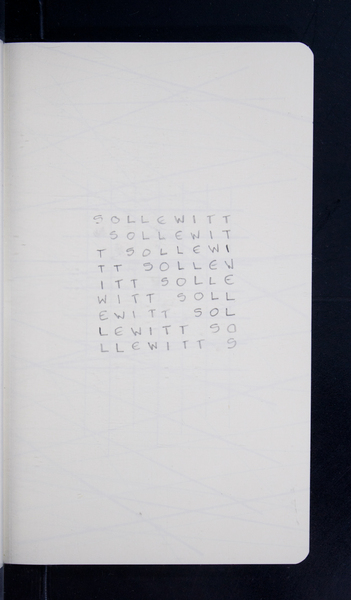 SOLLEWITT
SOLLEWIT
T SOLLEWI
TT SOLLEW
ITT SOLLE
WITT SOLL
EWITT SOL
LEWITT SO
LLEWITT S